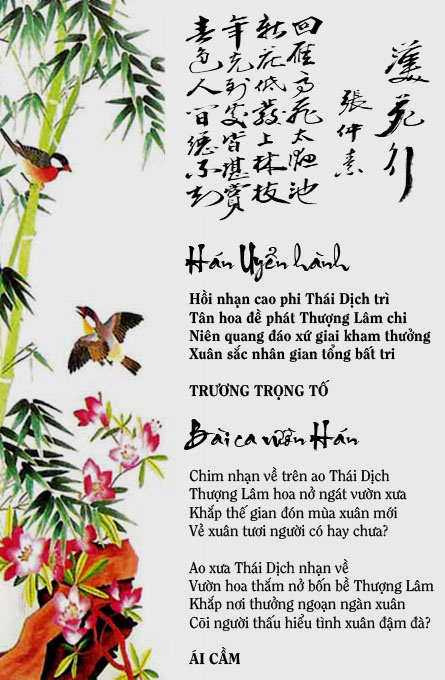 漢苑行
張仲素
回雁高飛太液池
新花低發上林枝
年光到處皆堪賞
春色人間總不知
Hán Uyển hành
Hồi nhạn cao phi Thái Dịch trì
Tân hoa đề phát Thượng Lâm chi
Niên quang đáo xứ giai kham thưởng
Xuân sắc nhân gian tổng bất tri
TRƯƠNG TRỌNG TỐ
Bài ca vườn Hán
Chim nhạn về trên ao Thái Dịch
Thượng Lâm hoa nở ngát vườn xưa
Khắp thế gian đón mùa xuân mới
Vẻ xuân tươi người có hay chưa?
Ao xưa Thái Dịch nhạn về
Vườn hoa thắm nở bốn bề Thượng Lâm
Khắp nơi thưởng ngoạn ngàn xuân
Cõi người thấu hiểu tình xuân đậm đà?
ÁI CẦM